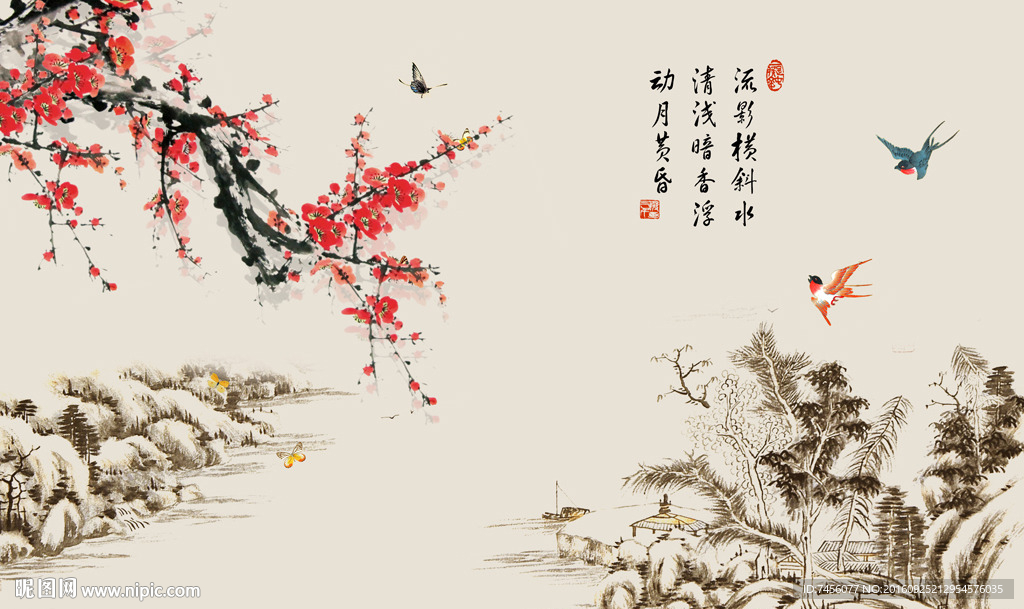 流影横斜水
清浅暗香浮
动月黄昏
昵图网 www.nipic.com
ID:7456077 NO:20160925212954576035